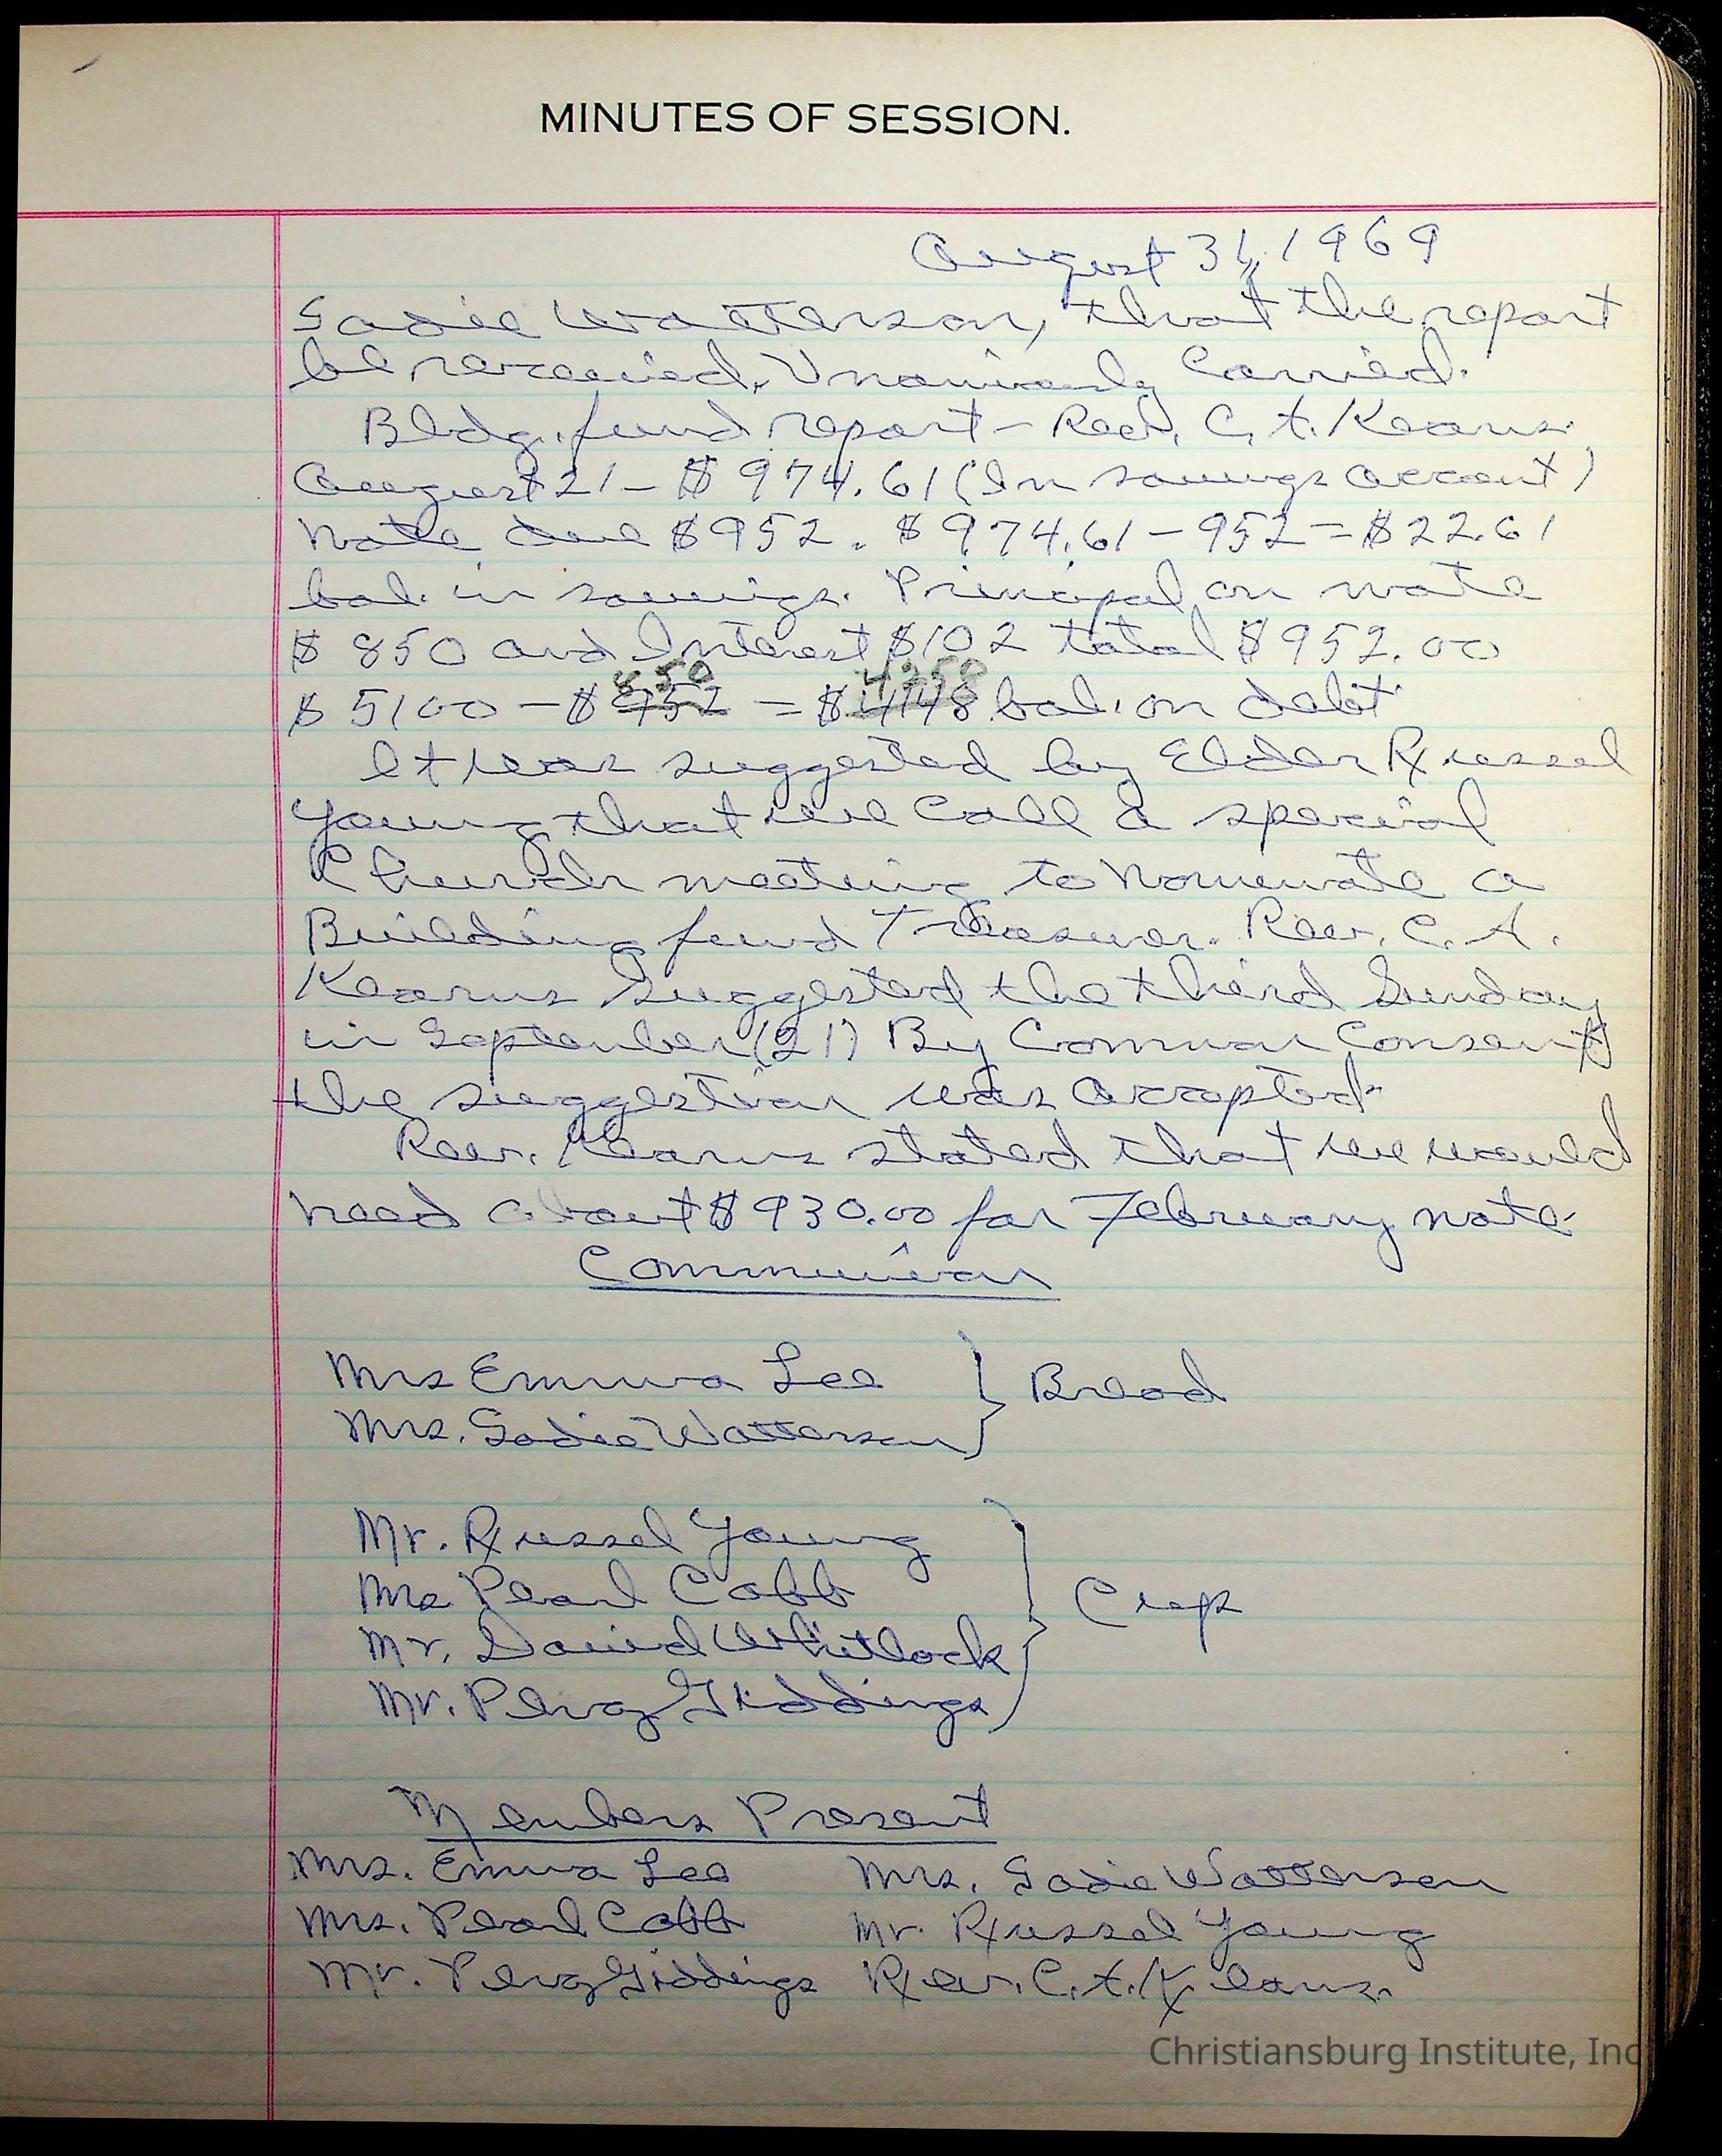 MINUTES OF SESSION.
August 31, 1969
Sadie Watterson, that the report
be received. Unanimously Carried.
Bldg. fund report - Rev. C. A. Kearns
August 21 - $974.61 (In savings account)
Note due $952. $974.61 - 952 = $22.61
bal. in savings. Principal on note
$850 and Interest $102 total $952.00
850 4250
$5100 - $952 = $4148 bal. on debt
It was suggested by Elder Russel
Young that we call a special
Church meeting to Nominate a
Building fund Treasurer. Rev. C. A.
Kearns suggested the third Sunday
in September (21) By Common Consent
the suggestion was accepted.
Rev. Kearns stated that we would
need about $930.00 for February note.
Communion
Mrs Emma Lee
Bread
Mrs. Sadie Watterson
Mr. Russel Young
Mrs Pearl Cobb
Cup
Mr. David Whitlock
Mr. Percy Giddings
Members Present
Mrs. Emma Lee Mrs. Sadie Watterson
Mrs. Pearl Cobb Mr. Russel Young
Mr. Percy Giddings Rev. C. A. Kearns.
Christiansburg Institute, Inc